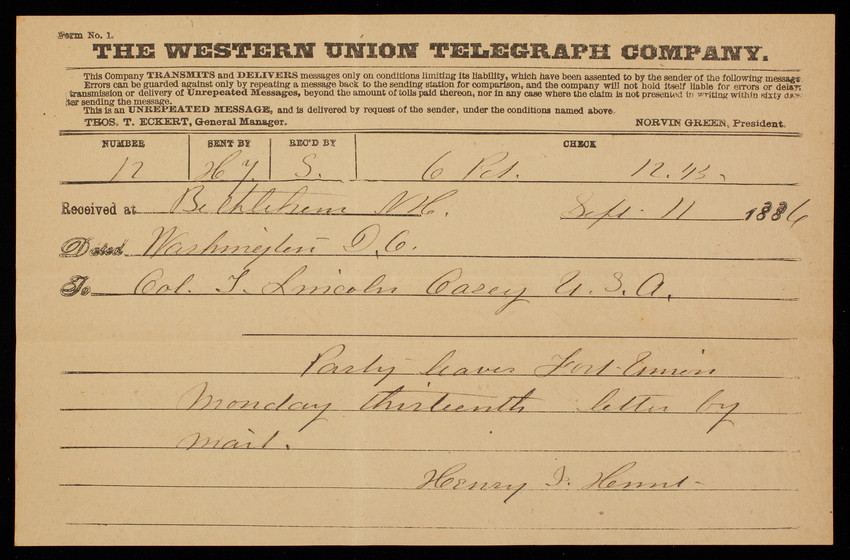 Form No. 1.
THE WESTERN UNION TELEGRAPH COMPANY.
This Company TRANSMITS and DELIVERS messages only on conditions limiting its liability, which have been assented to by the sender of the following message.
Errors can be guarded against only by repeating a message back to the sending station for comparison, and the company will not hold itself liable for errors or delays
transmission or delivery of Unrepeated Messages, beyond the amount of tolls paid thereon, nor in any case where the claim is not presented in writing within sixty days
ter sending the message.
This is an UNREPEATED MESSAGE, and is delivered by request of the sender, under the conditions named above.
THOS. T. ECKERT, General Manager. NORVIN GREEN, President.
NUMBER SENT BY REC'D BY CHECK
12 S. 6 Pd.
Received at Bethlehem N.H. Sept. 11 1886
Dated Washington D.C.
To Col. T. Lincoln Casey U.S.A.
Party leaves Fort
Monday thirteenth letter by
mail.
Henry